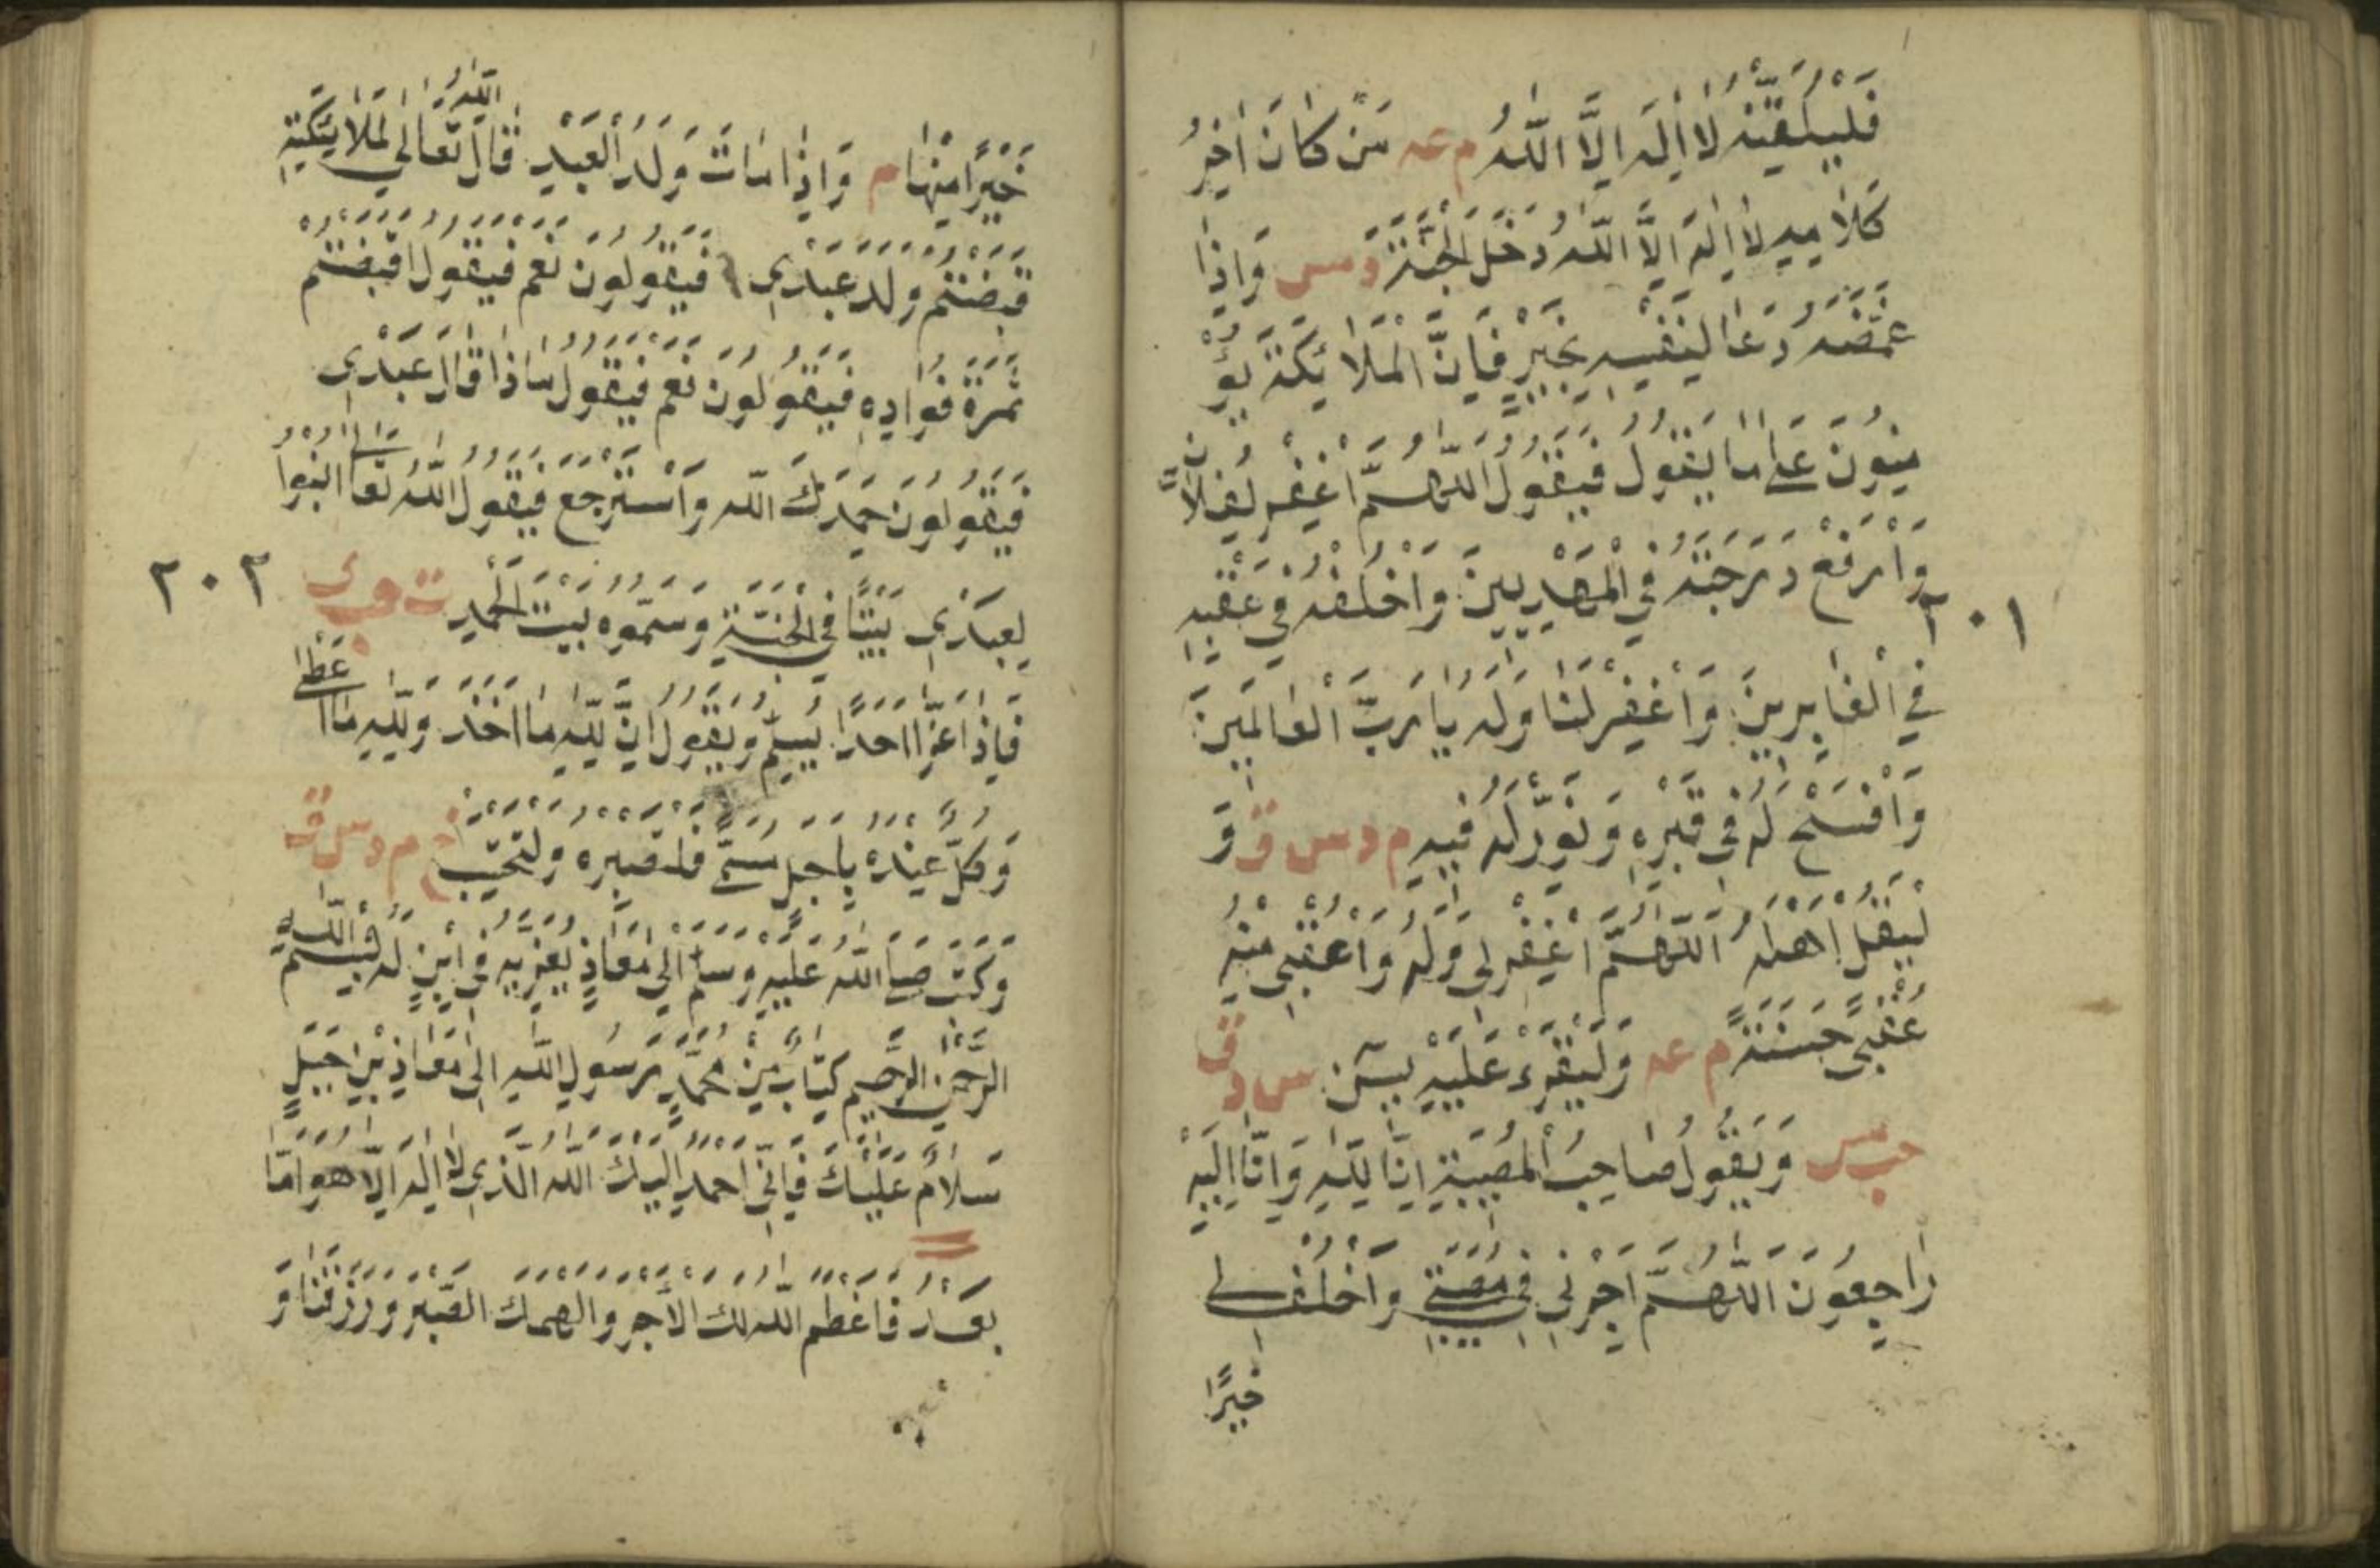 فَلْيُلَقِّنْهُ لَا اِلٰهَ اِلَّا اللّٰهُ م عه مَنْ كَانَ اٰخِرُ
كَلَامِهِ لَا اِلٰهَ اِلَّا اللّٰهُ دَخَلَ الْجَنَّةَ د مس وَاِذَا
غَمَّضَهُ دَعَا لِنَفْسِهِ بِخَيْرٍ فَاِنَّ الْمَلَائِكَةَ يُؤَ
مِنُونَ عَلَى مَا يَقُولُ فَيَقُولُ اَللّٰهُمَّ اغْفِرْ لِفُلَانٍ
وَارْفَعْ دَرَجَتَهُ فِي الْمَهْدِيِّينَ وَاخْلُفْهُ فِي عَقِبِهِ
٢٠١
فِي الْغَابِرِينَ وَاغْفِرْ لَنَا وَلَهُ يَا رَبَّ الْعَالَمِينَ
وَافْسَحْ لَهُ فِي قَبْرِهِ وَنَوِّرْ لَهُ فِيهِ م د س ق وَ
لْيَقُلْ اَهْلُهُ اَللّٰهُمَّ اغْفِرْ لِي وَلَهُ وَاَعْقِبْنِي مِنْهُ
عُقْبًى حَسَنَةً م عه وَلْيَقْرَءْ عَلَيْهِ يٰسٓ س د ق
حب مس وَيَقُولُ صَاحِبُ الْمُصِيبَةِ اِنَّا لِلّٰهِ وَاِنَّا اِلَيْهِ
رَاجِعُونَ اَللّٰهُمَّ اَجِرْنِي فِي مُصِيبَتِي وَاَخْلِفْ لِي
خَيْرًا
خَيْرًا مِنْهَا م وَاِذَا مَاتَ وَلَدُ الْعَبْدِ قَالَ اللّٰهُ تَعَالٰى لِمَلَائِكَتِهِ
قَبَضْتُمْ وَلَدَ عَبْدِي فَيَقُولُونَ نَعَمْ فَيَقُولُ اَقَبَضْتُمْ
ثَمَرَةَ فُوَادِهِ فَيَقُولُونَ نَعَمْ فَيَقُولُ مَاذَا قَالَ عَبْدِي
فَيَقُولُونَ حَمِدَكَ اللّٰه وَاسْتَرْجَعَ فَيَقُولُ اللّٰهُ تَعَالٰى ابْنُوا
لِعَبْدِي بَيْتًا فِي الْجَنَّةِ وَسَمُّوهُ بَيْتَ الْحَمْدِ ت حب ى
٢٠٢
فَاِذَا عَزَّا اَحَدًا يُسَلِّمُ وَيَقُولُ اِنَّ لِلّٰهِ مَا اَخَذَ وَلِلّٰهِ مَا اَعْطٰى
وَكُلٌّ عِنْدَهُ بِاَجَلٍ مُسَمًّى فَلْتَصْبِرْ وَلْتَحْتَسِبْ خ م د س ق
وَكَتَبَ صَلَّى اللّٰهُ عَلَيْهِ وَسَلَّمَ اِلٰى مُعَاذٍ يُعَزِّيهِ فِي ابْنٍ لَهُ بِسْمِ اللّٰهِ
الرَّحْمٰنِ الرَّحِيمِ كِتَابٌ مِنْ مُحَمَّدٍ رَسُولِ اللّٰهِ اِلٰى مُعَاذِ بْنِ جَبَلٍ
سَلَامٌ عَلَيْكَ فَاِنِّي اَحْمَدُ اِلَيْكَ اللّٰهَ الَّذِي لَا اِلٰهَ اِلَّا هُوَ اَمَّا
بَعْدُ فَاَعْظَمَ اللّٰهُ لَكَ الْاَجْرَ وَاَلْهَمَكَ الصَّبْرَ وَرَزَقَنَا وَ